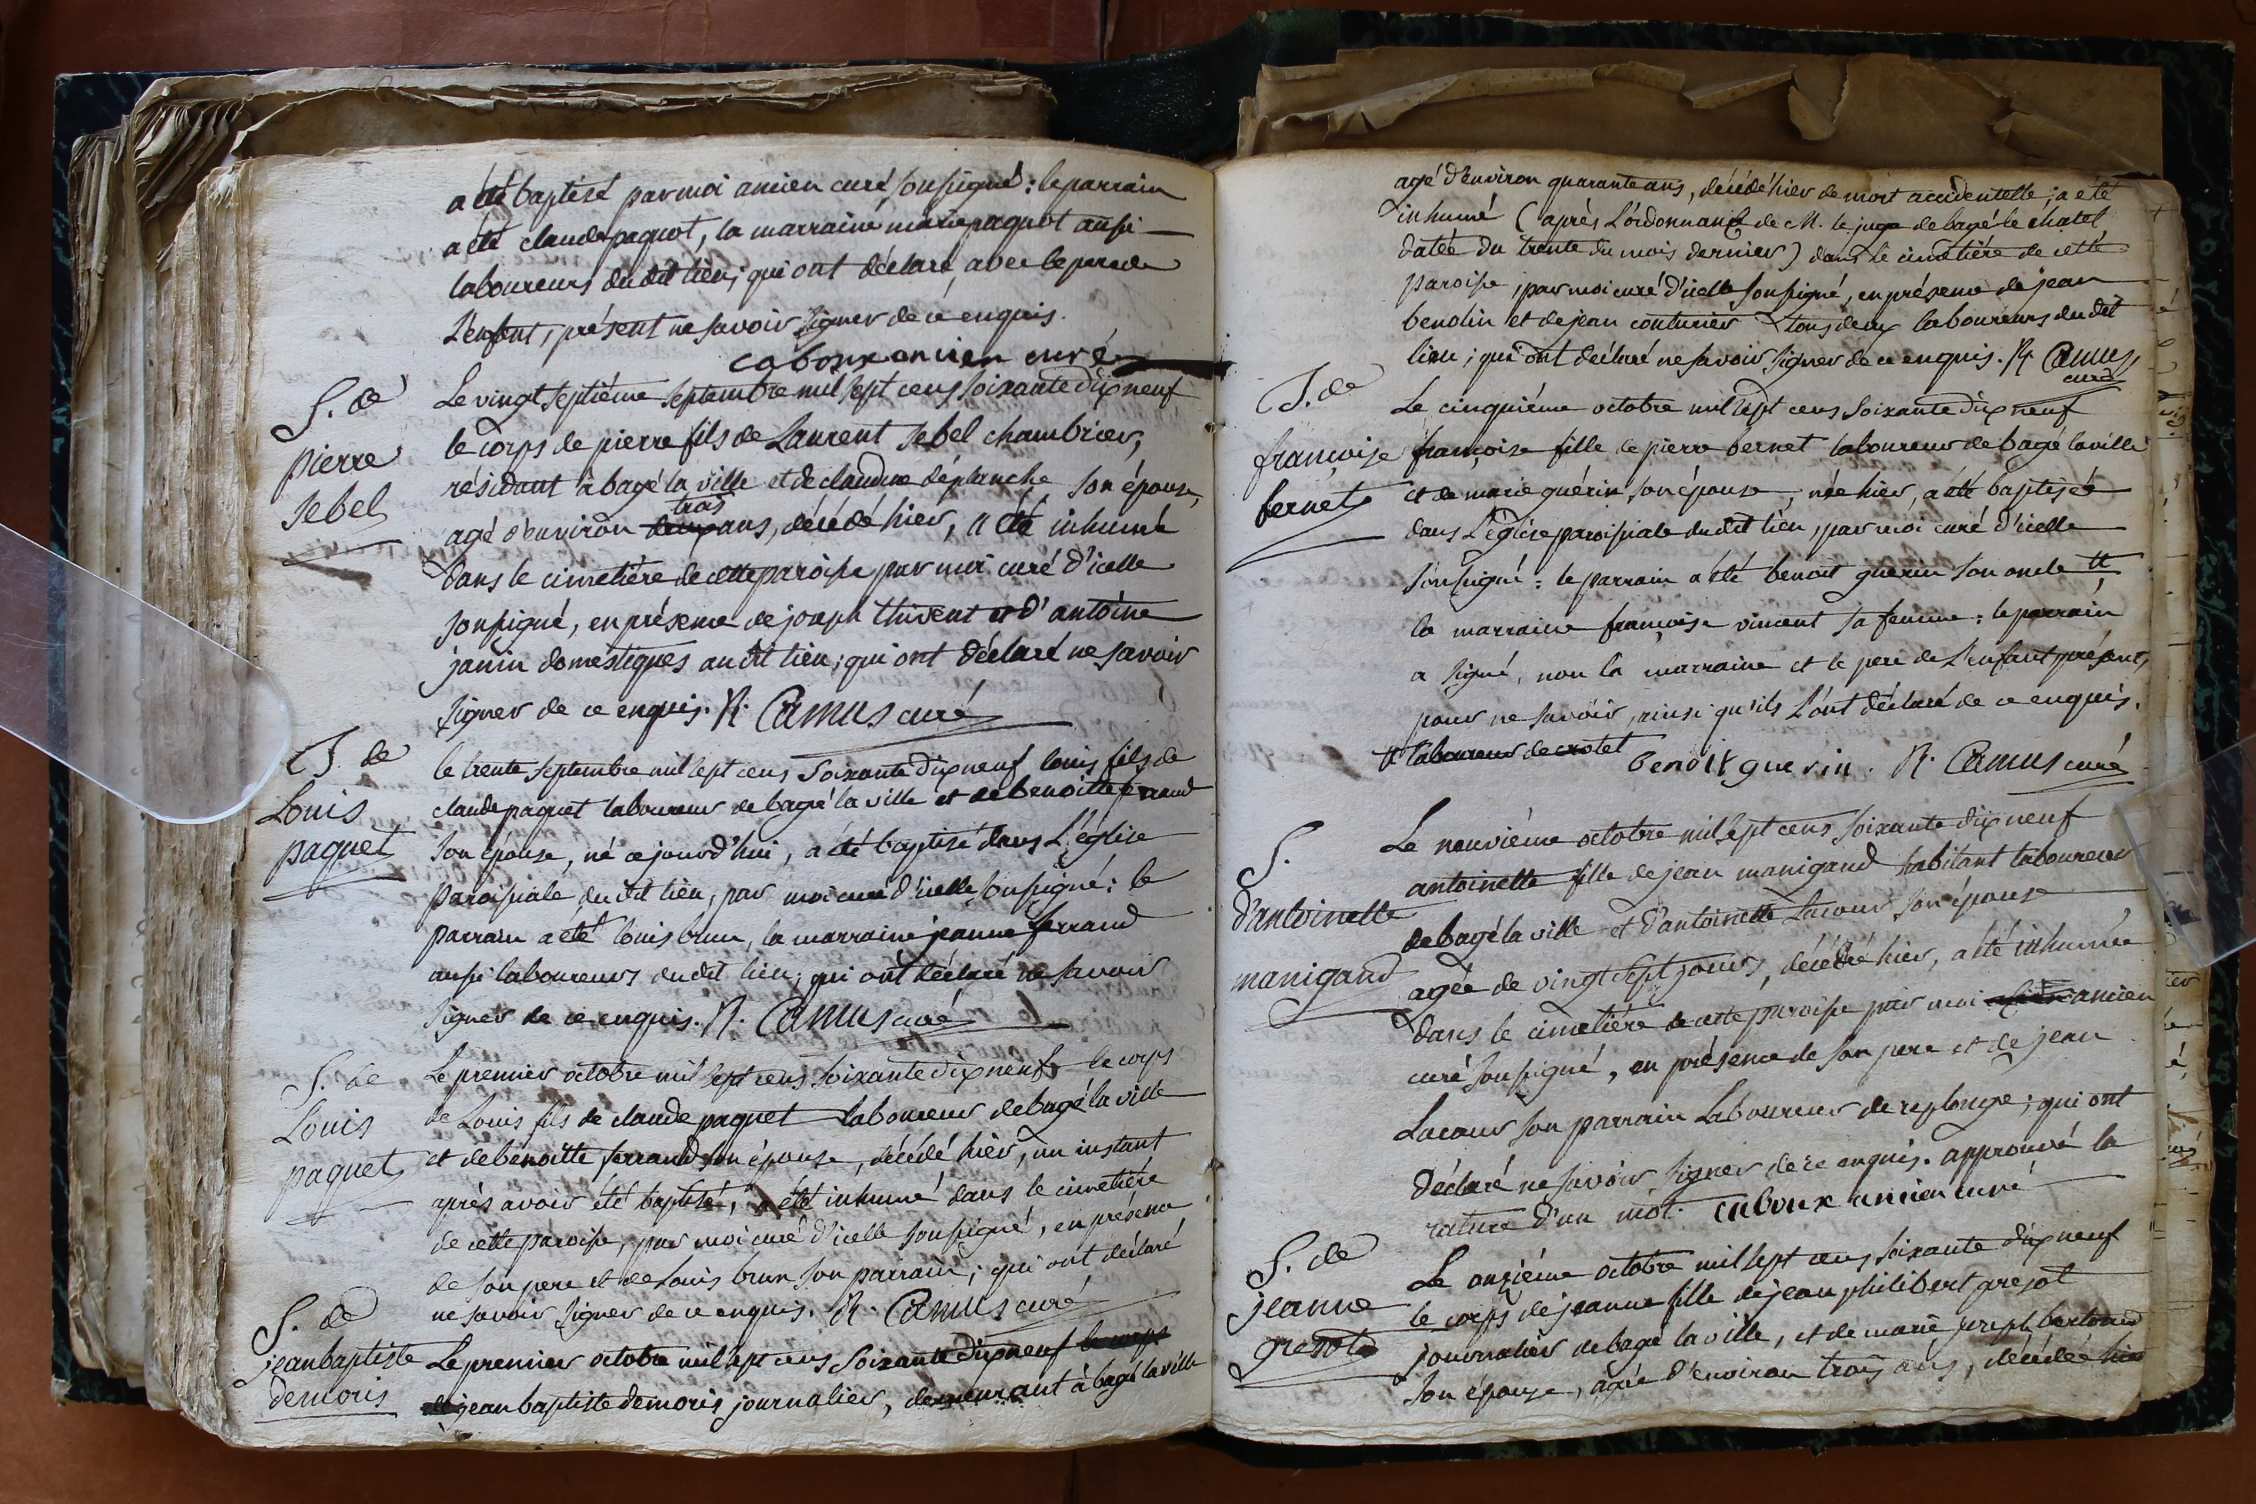 a été baptisé par moi ancien curé soussigné : le parrain
a été claude paquet, la marraine marie paquet aussi
laboureurs du dit lieu, qui ont déclaré, avec le pere de
L'enfant, présent ne savoir signer de ce enquis.
caboux ancien curé
S. de
pierre
Jebel
Le vingt septiéme septembre mil sept cens soixante dix neuf
le corps de pierre fils de Laurent Jebel chambrier,
résidant à bagé la ville et de claudine déplanche son épouse,
trois
agé d'environ deux ans, décédé hier, a été inhumé
dans le cimetière de cette paroisse par moi curé d'icelle
soussigné, en présence de joseph thivent et d'antoine
janin domestiques au dit lieu ; qui ont déclaré ne savoir
signer de ce enquis. R. Camus curé
B. de
Louis
paquet
le trente septembre mil sept cens soixante dix neuf louis fils de
claude paquet laboureur de bagé la ville et de benoitte ferrand
son épouse, né ce jourd'hui, a été baptisé dans L'église
paroissiale du dit lieu, par moi curé d'icelle soussigné : le
parrain a été louis brun, la marraine jeanne ferrand
aussi laboureurs du dit lieu ; qui ont déclaré ne savoir
signer de ce enquis. R. Camus curé
S. de
Louis
paquet
Le premier octobre mil sept cens soixante dix neuf le corps
de Louis fils de claude paquet laboureur de bagé la ville
et de benoitte ferrand son épouse, décédé hier, un instant
après avoir été baptisé, a été inhumé dans le cimetière
de cette paroisse, par moi curé d'icelle soussigné, en présence
de son pere et de Louis brun son parrain ; qui ont déclaré
ne savoir signer de ce enquis. R. Camus curé
S. de
jean baptiste
demoris
Le premier octobre mil sept cens soixante dix neuf le corps
de jean baptiste demoris journalier, demeurant à bagé la ville
agé d'environ quarante ans, décédé hier de mort accidentelle ; a été
inhumé (après L'ordonnance de M. le juge de bagé le chatel
datée du trente du mois dernier) dans le cimetière de cette
paroisse, par moi curé d'icelle soussigné, en présence de jean
benolin et de jean couturier tous deux laboureurs du dit
lieu ; qui ont déclaré ne savoir signer de ce enquis. R. Camus
curé
B. de
françoise
bernet
Le cinquiéme octobre mil sept cens soixante dix neuf
françoise fille de pierre bernet laboureur de bagé la ville
et de marie guérin son épouse, née hier, a été baptisée
dans L'église paroissiale du dit lieu, par moi curé d'icelle
soussigné : le parrain a été benoit guerin son oncle #
la marraine françoise vincent sa femme : le parrain
a signé, non la marraine et le pere de L'enfant présent,
pour ne savoir, ainsi qu'ils L'ont déclaré de ce enquis.
# laboureur de crotet benoit guerin. R. Camus curé
S.
d'antoinette
manigand
Le neuviéme octobre mil sept cens soixante dix neuf
antoinette fille de jean manigand habitant laboureur
de bagé la ville et d'antoinette Lacour son épouse
agée de vingt sept jours, décédée hier, a été inhumée
dans le cimetière de cette paroisse par moi ancien
curé soussigné, en présence de son pere et de jean
Lacour son parrain Laboureur de replonge ; qui ont
déclaré ne savoir signer de ce enquis. approuvé la
rature d'un mot. caboux ancien curé
S. de
jeanne
gresot
Le onziéme octobre mil sept cens soixante dix neuf
le corps de jeanne fille de jean philibert gresot
journalier de bagé la ville, et de marie joseph bertoud
son épouse, agée d'environ trois ans, décédée hier